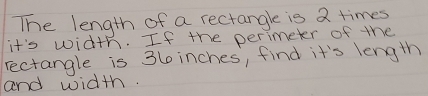 The length of a rectangle is 2 times
it's width. If the perimeter of the
rectangle is 36 inches, find it's length
and width.